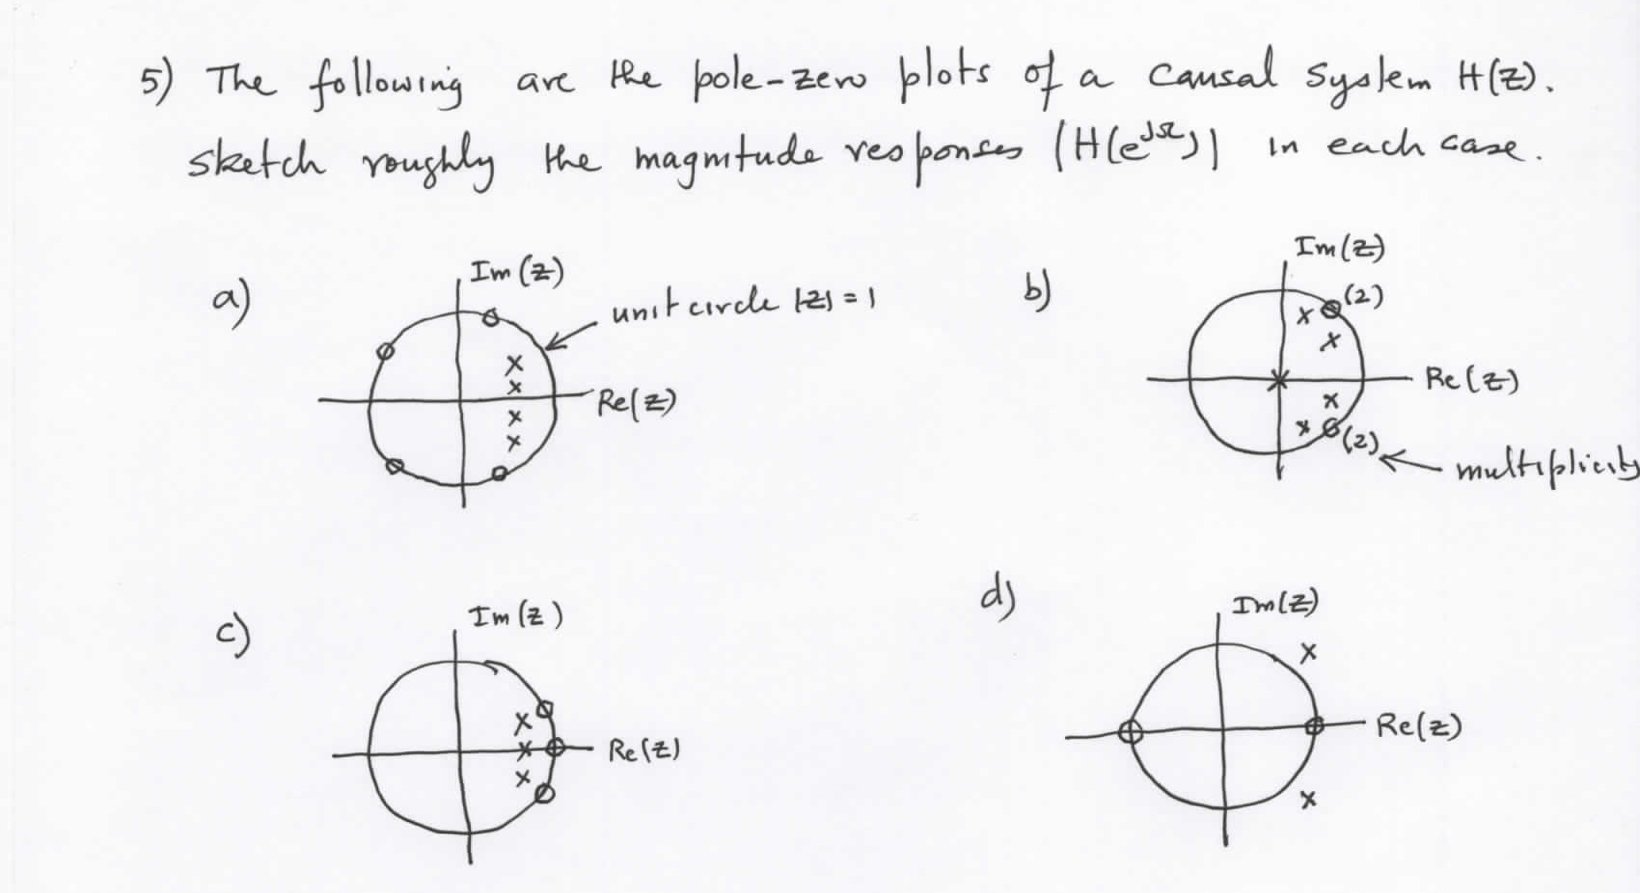 5) The following are the pole-zero plots of a causal system H(z).
sketch roughly the magnitude responses |H(e^jΩ)| in each case.
a)
Im(z)
unit circle |z| = 1
Re(z)
b)
Im(z)
(2)
Re(z)
(2)
multiplicity
c)
Im(z)
Re(z)
d)
Im(z)
Re(z)